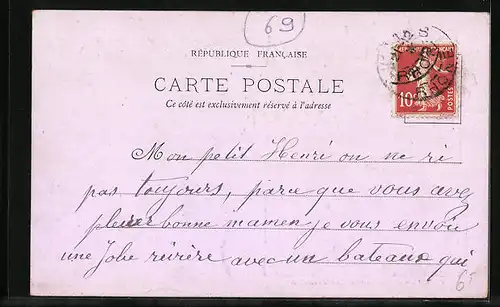 69
RÉPUBLIQUE FRANÇAISE
CARTE POSTALE
Ce côté est exclusivement réservé à l'adresse
10
POSTES
Mon petit Henri on ne ri
pas toujours, parce que vous avez
pleurer bonne mamen je vous envoie
une Jolie rivière avec un bateaux qui